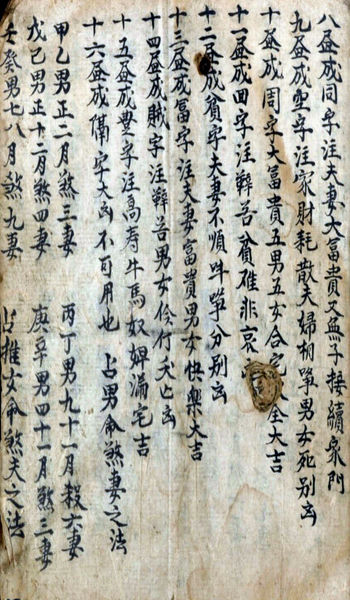 八昼成同字注夫妻大富貴又無子接續眾門
九昼成空字注家財耗散夫婦相爭男女死别凶
十昼成周字大富貴五男五女合宅全大吉
十一昼成田字注辭苦貧碓非哀
十二昼成貧字夫妻不順時爭分别凶
十三昼成富字注夫妻富貴男女快樂大吉
十四昼成賊字注辭苦男女伶仃夭亡凶
十五昼成豊字注高寿牛馬奴婢滿宅吉
十六昼成隔字大凶不可用也 占男命煞妻之法
甲乙男正二月煞三妻 丙丁男九十一月殺六妻
戊己男正十二月煞四妻 庚辛男四十一月煞三妻
壬癸男七八月煞九妻 占推女命煞夫之法